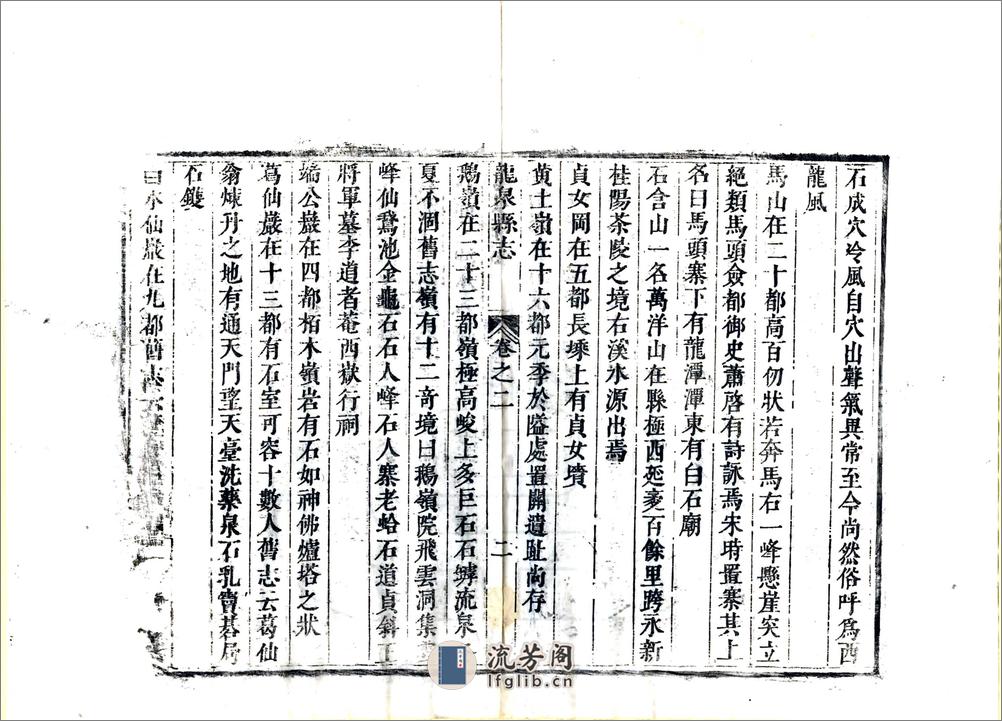 石成穴冷風自穴出聲氣異常至今尚然俗呼為西
龍風
馬山在二十都高百仞狀若奔馬右一峰懸崖突立
絕類馬頭僉都御史蕭啓有詩詠焉宋時置寨其上
名曰馬頭寨下有龍潭潭東有白石廟
石含山一名萬洋山在縣極西延袤百餘里跨永新
桂陽茶陵之境右溪水源出焉
貞女岡在五都長塍上有貞女墳
黄土嶺在十六都元季於隘處置關遺趾尚存
龍泉縣志
卷之二
二
鵝嶺在二十三都嶺極高峻上多巨石石罅流泉
夏不涸舊志嶺有十二奇境曰鵝嶺院飛雲洞集
峰仙鵞池金龜石石人峰石人寨老蛤石道貞斜
將軍墓李道者菴西嶽行祠
端公巖在四都栢木嶺岩有石如神佛爐塔之狀
葛仙巖在十三都有石室可容十數人舊志云葛仙
翁煉丹之地有通天門望天臺洗藥泉石乳竇碁局
石鑊
仙巖在九都舊志
流芳阁
lfglib.cn